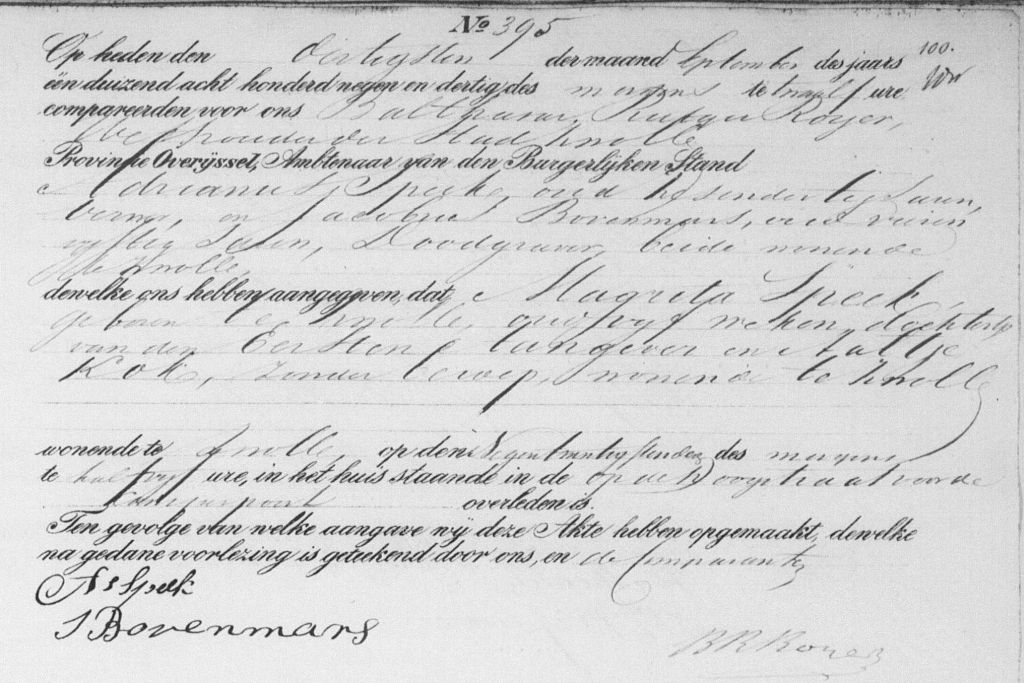 No 395
Op heden den Dertigsten der maand September des jaars 100.
één duizend acht honderd negen en dertig des morgens te twaalf ure
compareerden voor ons Balthazar Rutger Royer,
Wethouder der Stad Zwolle
Provincie Overijssel, Ambtenaar van den Burgerlijken Stand
Adrianus Speck, oud zesendertig Jaren,
en Jacobus Bovenmars, oud vieren
vijftig Jaren, Doodgraver, beide wonende
te Zwolle,
dewelke ons hebben aangegeven, dat Magreta Speck,
geboren te Zwolle, oud vijf weken, dochtertje
van den Eersten aangever en Aaltje
Kok, zonder beroep, wonende te Zwolle
wonende te Zwolle op den Negentwintigsten dezer des morgens
te half vijf ure, in het huis staande in de op de Hoogstraat voor de
Kamperpoort overleden is.
Ten gevolge van welke aangave wij deze Akte hebben opgemaakt, dewelke
na gedane voorlezing is geteekend door ons, en de Comparanten
As Speck
J Bovenmars
BRRoyer